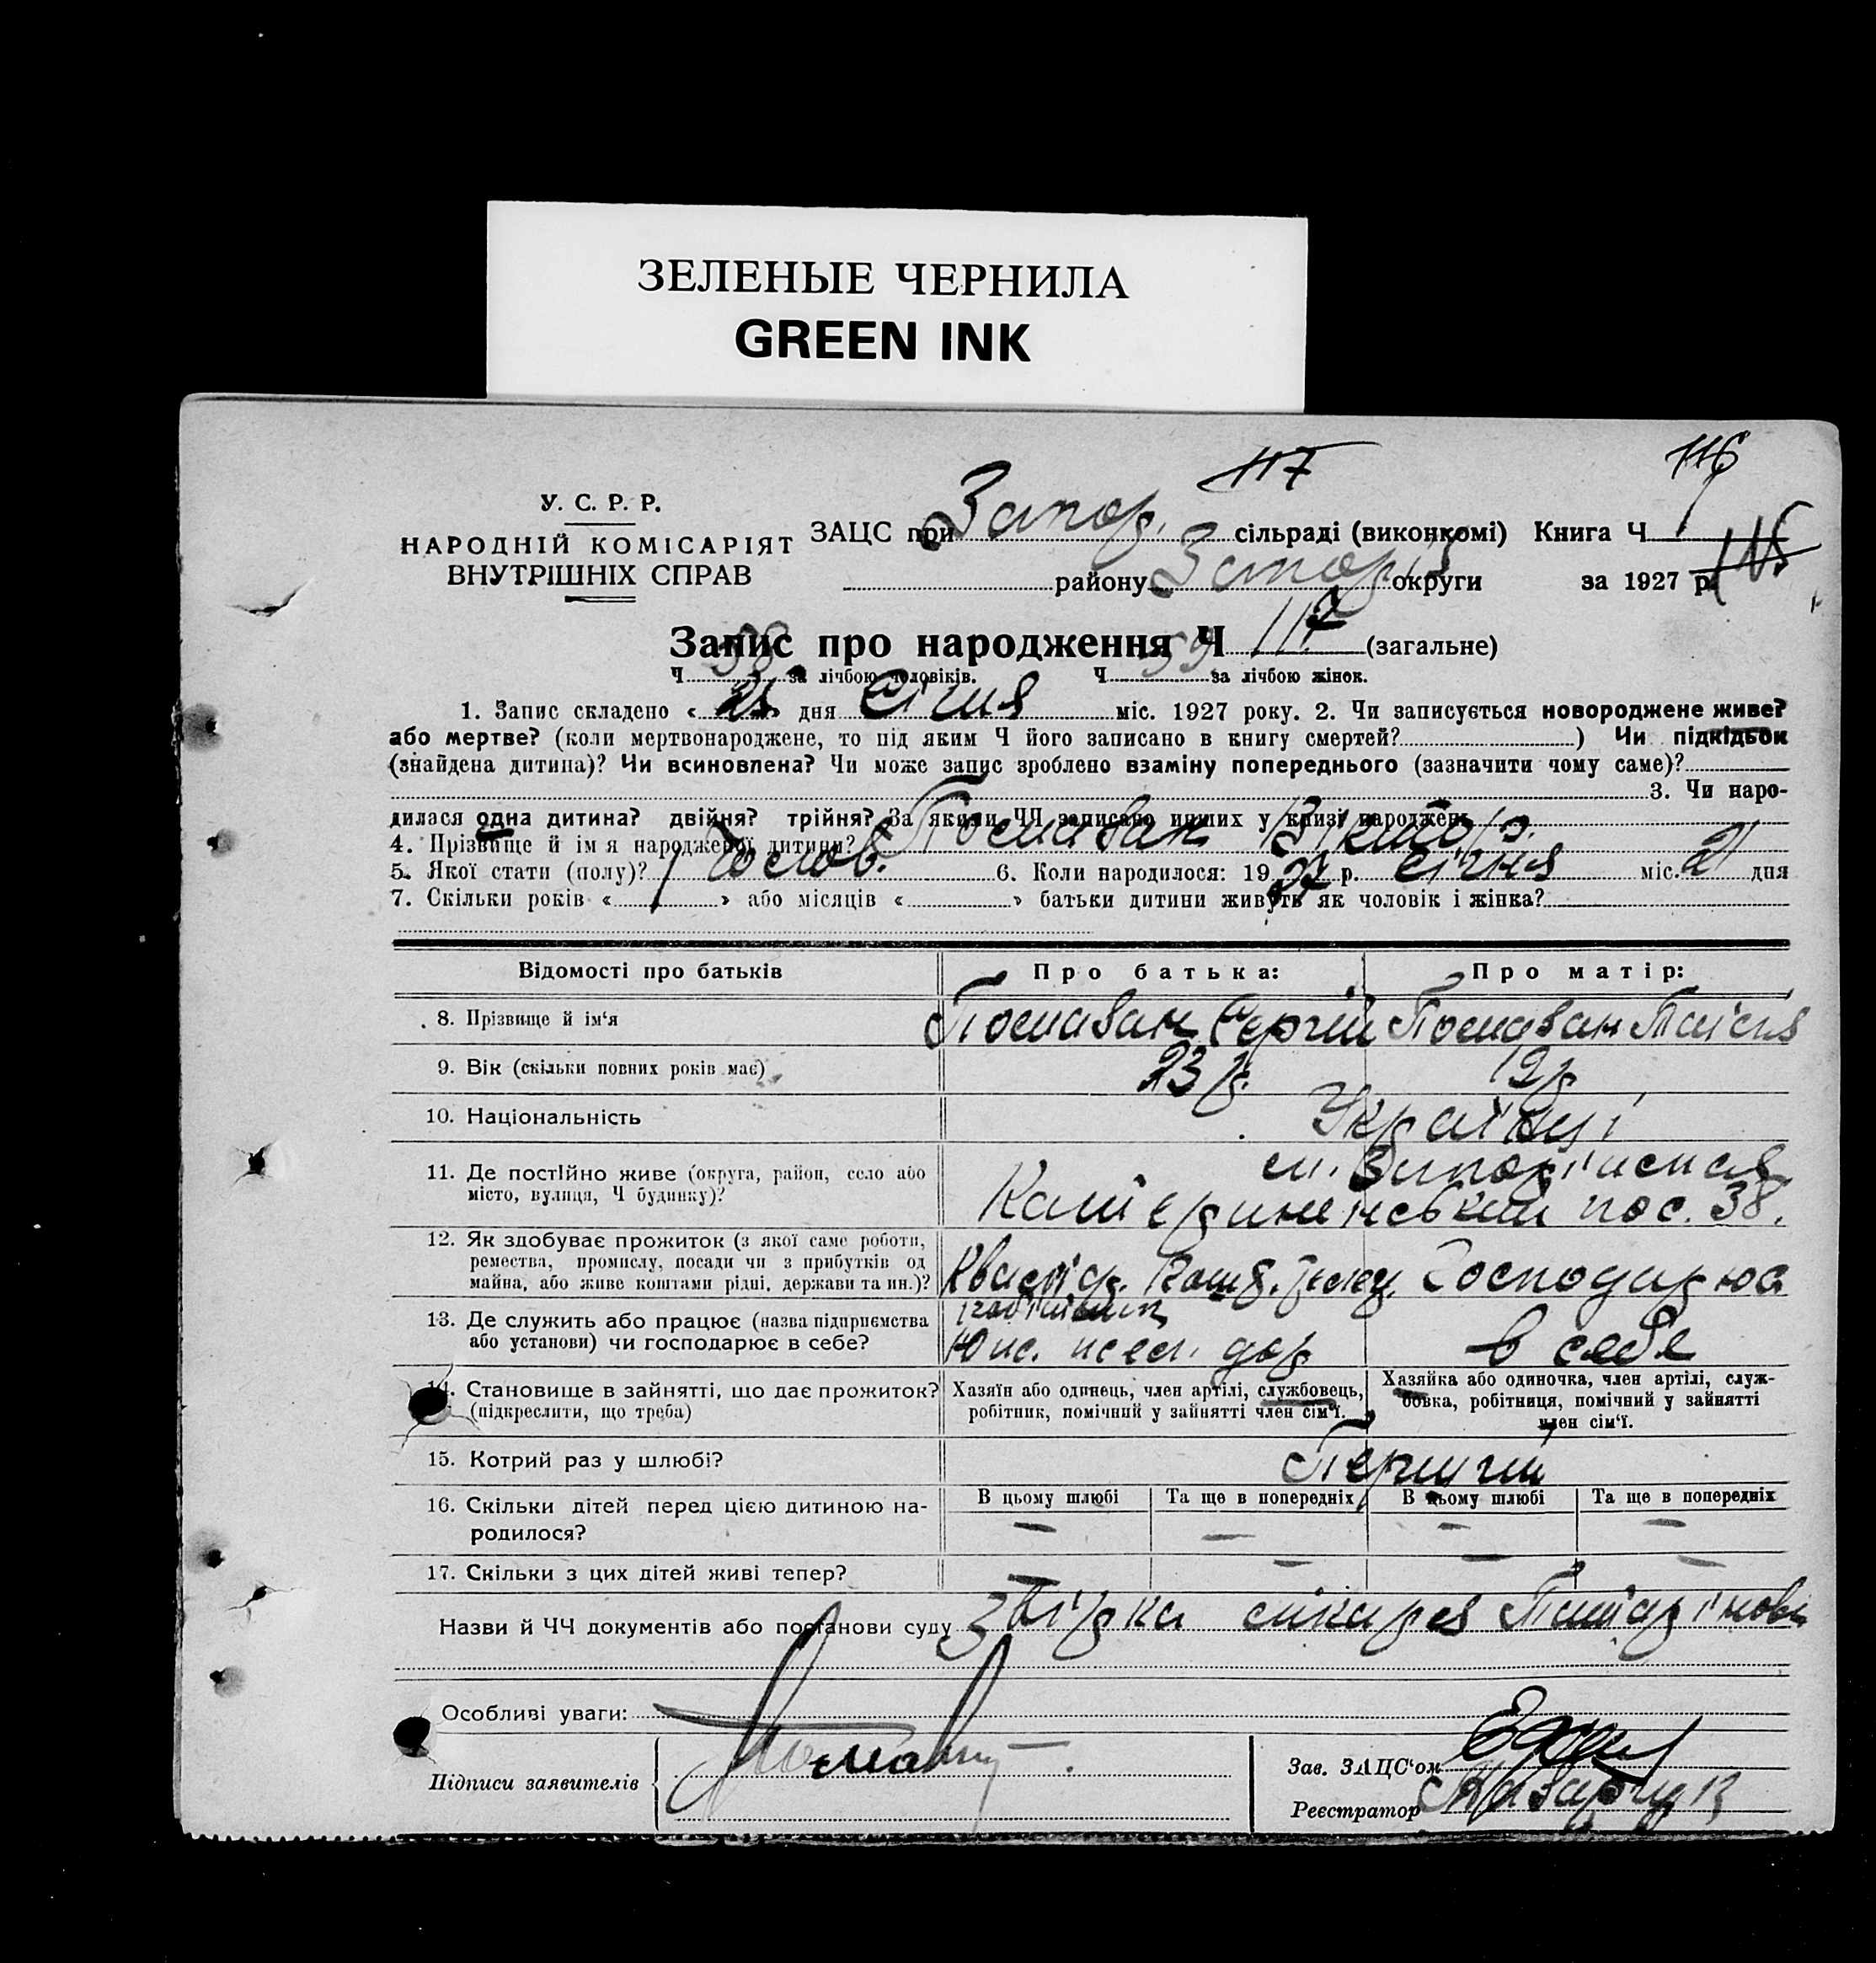 ЗЕЛЕНЫЕ ЧЕРНИЛА
GREEN INK
117
116
У. С. Р. Р.
НАРОДНІЙ КОМІСАРІЯТ
ВНУТРІШНІХ СПРАВ
ЗАЦС при Запор. сільраді (виконкомі) Книга Ч
району Запоріз округи за 1927 р.
Запис про народження Ч 117 (загальне)
Ч 58 за лічбою чоловіків. Ч 59 за лічбою жінок.
1. Запис складено « » дня Січня міс. 1927 року. 2. Чи записується новороджене живе?
або мертве? (коли мертвонароджене, то під яким Ч його записано в книгу смертей? ) Чи підкідьок
(знайдена дитина)? Чи всиновлена? Чи може запис зроблено взаміну попереднього (зазначити чому саме)?
3. Чи наро-
дилася одна дитина? двійня? трійня? За якими ЧЧ записано инших у книзі народжень
4. Прізвище й ім я народженої дитини? Поставан Віктор
5. Якої стати (полу)? Чолов. 6. Коли народилося: 1927 р. січня міс. 21 дня
7. Скільки років « » або місяців « » батьки дитини живуть як чоловік і жінка?
Відомості про батьків Про батька: Про матір:
8. Прізвище й ім‘я Поставан Сергій Поставан Таісія
9. Вік (скільки повних років має) 23 р. 19 р
10. Національність Українці
11. Де постійно живе (округа, район, село або
місто, вулиця, Ч будинку)?
Катеріниньський пос. 38.
12. Як здобуває прожиток (з якої саме роботи,
ремества, промислу, посади чи з прибутків од
майна, або живе коштами рідні, держави та ин.)? Господарюа
13. Де служить або працює (назва підприємства
або установи) чи господарює в себе? в себе
14. Становище в зайнятті, що дає прожиток?
(підкреслити, що треба)
Хазяїн або одинець, член артілі, службовець,
робітник, помічний у зайнятті член сім‘ї.
Хазяйка або одиночка, член артілі, служ-
бовка, робітниця, помічний у зайнятті
член сім‘ї.
15. Котрий раз у шлюбі? Перший
16. Скільки дітей перед цією дитиною на-
родилося?
В цьому шлюбі Та ще в попередніх В цьому шлюбі Та ще в попередніх
— — — —
17. Скільки з цих дітей живі тепер? — — — —
Назви й ЧЧ документів або постанови суду
Особливі уваги:
Підписи заявителів
Зав. ЗАЦС‘ом
Реєстратор